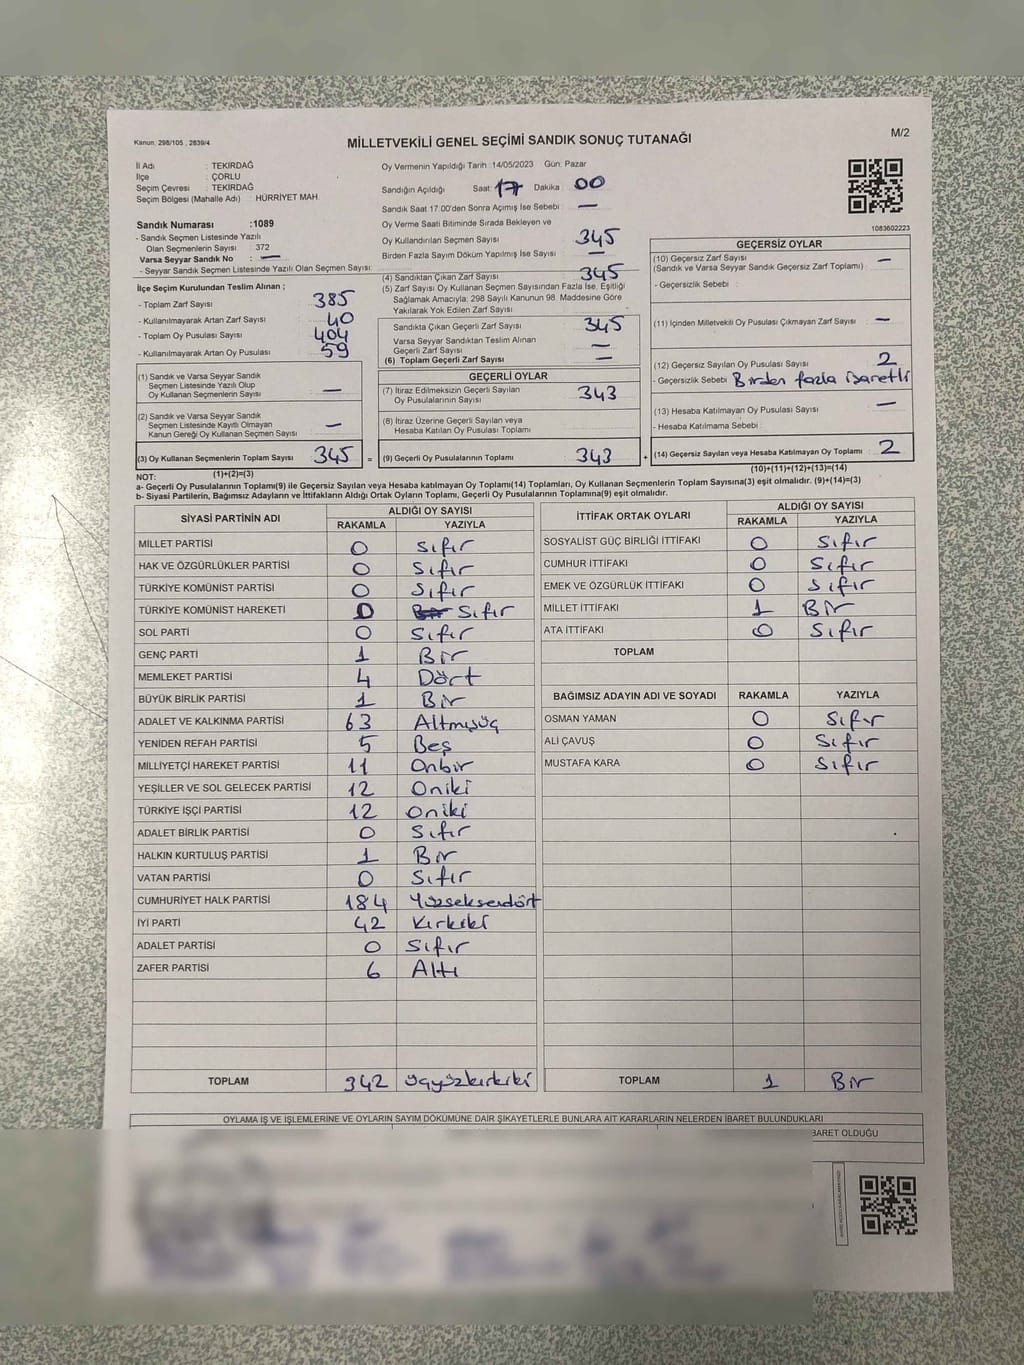 Kanun: 298/105 , 2839/4
MİLLETVEKİLİ GENEL SEÇİMİ SANDIK SONUÇ TUTANAĞI
M/2
İl Adı : TEKİRDAĞ
İlçe : ÇORLU
Seçim Çevresi : TEKİRDAĞ
Seçim Bölgesi (Mahalle Adı) HÜRRİYET MAH.
Sandık Numarası :1089
- Sandık Seçmen Listesinde Yazılı
Olan Seçmenlerin Sayısı : 372
Varsa Seyyar Sandık No : —
- Seyyar Sandık Seçmen Listesinde Yazılı Olan Seçmen Sayısı:
İlçe Seçim Kurulundan Teslim Alınan ;
- Toplam Zarf Sayısı : 385
- Kullanılmayarak Artan Zarf Sayısı : 40
- Toplam Oy Pusulası Sayısı : 404
- Kullanılmayarak Artan Oy Pusulası : 59
(1) Sandık ve Varsa Seyyar Sandık
Seçmen Listesinde Yazılı Olup
Oy Kullanan Seçmenlerin Sayısı : —
(2) Sandık ve Varsa Seyyar Sandık
Seçmen Listesinde Kayıtlı Olmayan
Kanun Gereği Oy Kullanan Seçmen Sayısı : —
(3) Oy Kullanan Seçmenlerin Toplam Sayısı : 345
(1)+(2)=(3)
Oy Vermenin Yapıldığı Tarih :14/05/2023 Gün: Pazar
Sandığın Açıldığı Saat: 17 Dakika : 00
Sandık Saat 17:00'den Sonra Açımış İse Sebebi : —
Oy Verme Saati Bitiminde Sırada Bekleyen ve
Oy Kullandırılan Seçmen Sayısı : 345
Birden Fazla Sayım Döküm Yapılmış İse Sayısı : —
(4) Sandıktan Çıkan Zarf Sayısı : 345
(5) Zarf Sayısı Oy Kullanan Seçmen Sayısından Fazla İse, Eşitliği
Sağlamak Amacıyla; 298 Sayılı Kanunun 98. Maddesine Göre
Yakılarak Yok Edilen Zarf Sayısı :
Sandıkta Çıkan Geçerli Zarf Sayısı : 345
Varsa Seyyar Sandıktan Teslim Alınan
Geçerli Zarf Sayısı : —
(6) Toplam Geçerli Zarf Sayısı : —
GEÇERLİ OYLAR
(7) İtiraz Edilmeksizin Geçerli Sayılan
Oy Pusulalarının Sayısı : 343
(8) İtiraz Üzerine Geçerli Sayılan veya
Hesaba Katılan Oy Pusulası Toplamı :
= (9) Geçerli Oy Pusulalarının Toplamı : 343 +
1083602223
GEÇERSİZ OYLAR
(10) Geçersiz Zarf Sayısı : —
(Sandık ve Varsa Seyyar Sandık Geçersiz Zarf Toplamı)
- Geçersizlik Sebebi :
(11) İçinden Milletvekili Oy Pusulası Çıkmayan Zarf Sayısı : —
(12) Geçersiz Sayılan Oy Pusulası Sayısı : 2
- Geçersizlik Sebebi : Birden fazla işaretli
(13) Hesaba Katılmayan Oy Pusulası Sayısı : —
- Hesaba Katılmama Sebebi :
(14) Geçersiz Sayılan veya Hesaba Katılmayan Oy Toplamı : 2
(10)+(11)+(12)+(13)=(14)
NOT:
a- Geçerli Oy Pusulalarının Toplamı(9) ile Geçersiz Sayılan veya Hesaba katılmayan Oy Toplamı(14) Toplamları, Oy Kullanan Seçmenlerin Toplam Sayısına(3) eşit olmalıdır. (9)+(14)=(3)
b- Siyasi Partilerin, Bağımsız Adayların ve İttifakların Aldığı Ortak Oyların Toplamı, Geçerli Oy Pusulalarının Toplamına(9) eşit olmalıdır.
SİYASİ PARTİNİN ADI ALDIĞI OY SAYISI
RAKAMLA YAZIYLA
MİLLET PARTİSİ 0 Sıfır
HAK VE ÖZGÜRLÜKLER PARTİSİ 0 Sıfır
TÜRKİYE KOMÜNİST PARTİSİ 0 Sıfır
TÜRKİYE KOMÜNİST HAREKETİ 0 Sıfır
SOL PARTİ 0 Sıfır
GENÇ PARTİ 1 Bir
MEMLEKET PARTİSİ 4 Dört
BÜYÜK BİRLİK PARTİSİ 1 Bir
ADALET VE KALKINMA PARTİSİ 63 Altmışüç
YENİDEN REFAH PARTİSİ 5 Beş
MİLLİYETÇİ HAREKET PARTİSİ 11 Onbir
YEŞİLLER VE SOL GELECEK PARTİSİ 12 Oniki
TÜRKİYE İŞÇİ PARTİSİ 12 Oniki
ADALET BİRLİK PARTİSİ 0 Sıfır
HALKIN KURTULUŞ PARTİSİ 1 Bir
VATAN PARTİSİ 0 Sıfır
CUMHURİYET HALK PARTİSİ 184 Yüzseksendört
İYİ PARTİ 42 Kırkiki
ADALET PARTİSİ 0 Sıfır
ZAFER PARTİSİ 6 Altı
TOPLAM 342 üçyüzkırkiki
İTTİFAK ORTAK OYLARI ALDIĞI OY SAYISI
RAKAMLA YAZIYLA
SOSYALİST GÜÇ BİRLİĞİ İTTİFAKI 0 Sıfır
CUMHUR İTTİFAKI 0 Sıfır
EMEK VE ÖZGÜRLÜK İTTİFAKI 0 Sıfır
MİLLET İTTİFAKI 1 Bir
ATA İTTİFAKI 0 Sıfır
TOPLAM
BAĞIMSIZ ADAYIN ADI VE SOYADI RAKAMLA YAZIYLA
OSMAN YAMAN 0 Sıfır
ALİ ÇAVUŞ 0 Sıfır
MUSTAFA KARA 0 Sıfır
TOPLAM 1 Bir
OYLAMA İŞ VE İŞLEMLERİNE VE OYLARIN SAYIM DÖKÜMÜNE DAİR ŞİKAYETLERLE BUNLARA AİT KARARLARIN NELERDEN İBARET BULUNDUKLARI
BARET OLDUĞU